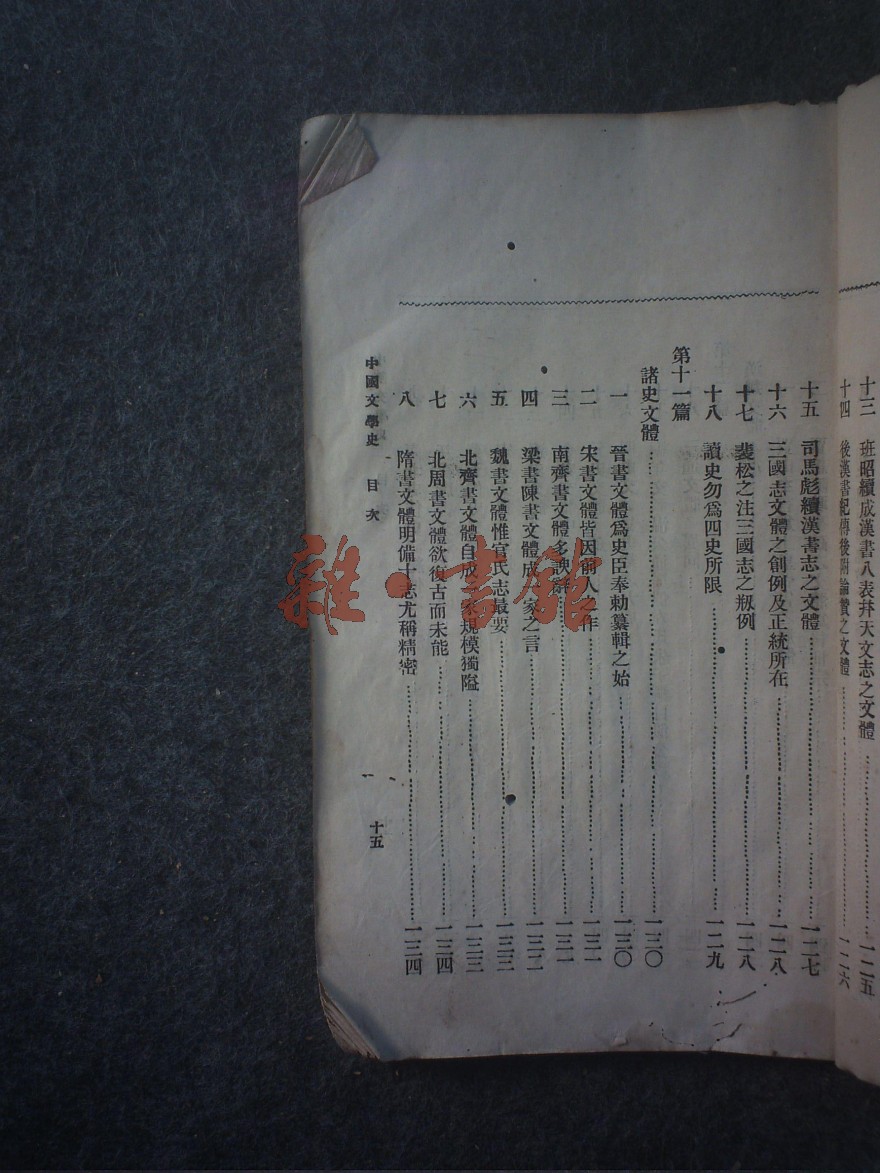 十三 班昭續成漢書八表幷天文志之文體 一二五
十四 後漢書紀傳後附論贊之文體 一二六
十五 司馬彪續漢書志之文體 一二七
十六 三國志文體之創例及正統所在 一二八
十七 裴松之注三國志之㧞例 一二八
十八 讀史勿爲四史所限 一二九
第十一篇
諸史文體 一三〇
一 晉書文體爲史臣奉勅纂輯之始 一三〇
二 宋書文體皆因前人之作 一三一
三 南齊書文體多諛辭 一三一
四 梁書陳書文體成一家之言 一三二
五 魏書文體惟官氏志最要 一三三
六 北齊書文體自成一家規模獨隘 一三三
七 北周書文體欲復古而未能 一三四
八 隋書文體明備十志尤稱精密 一三四
中國文學史 目次
十五
雜·書館